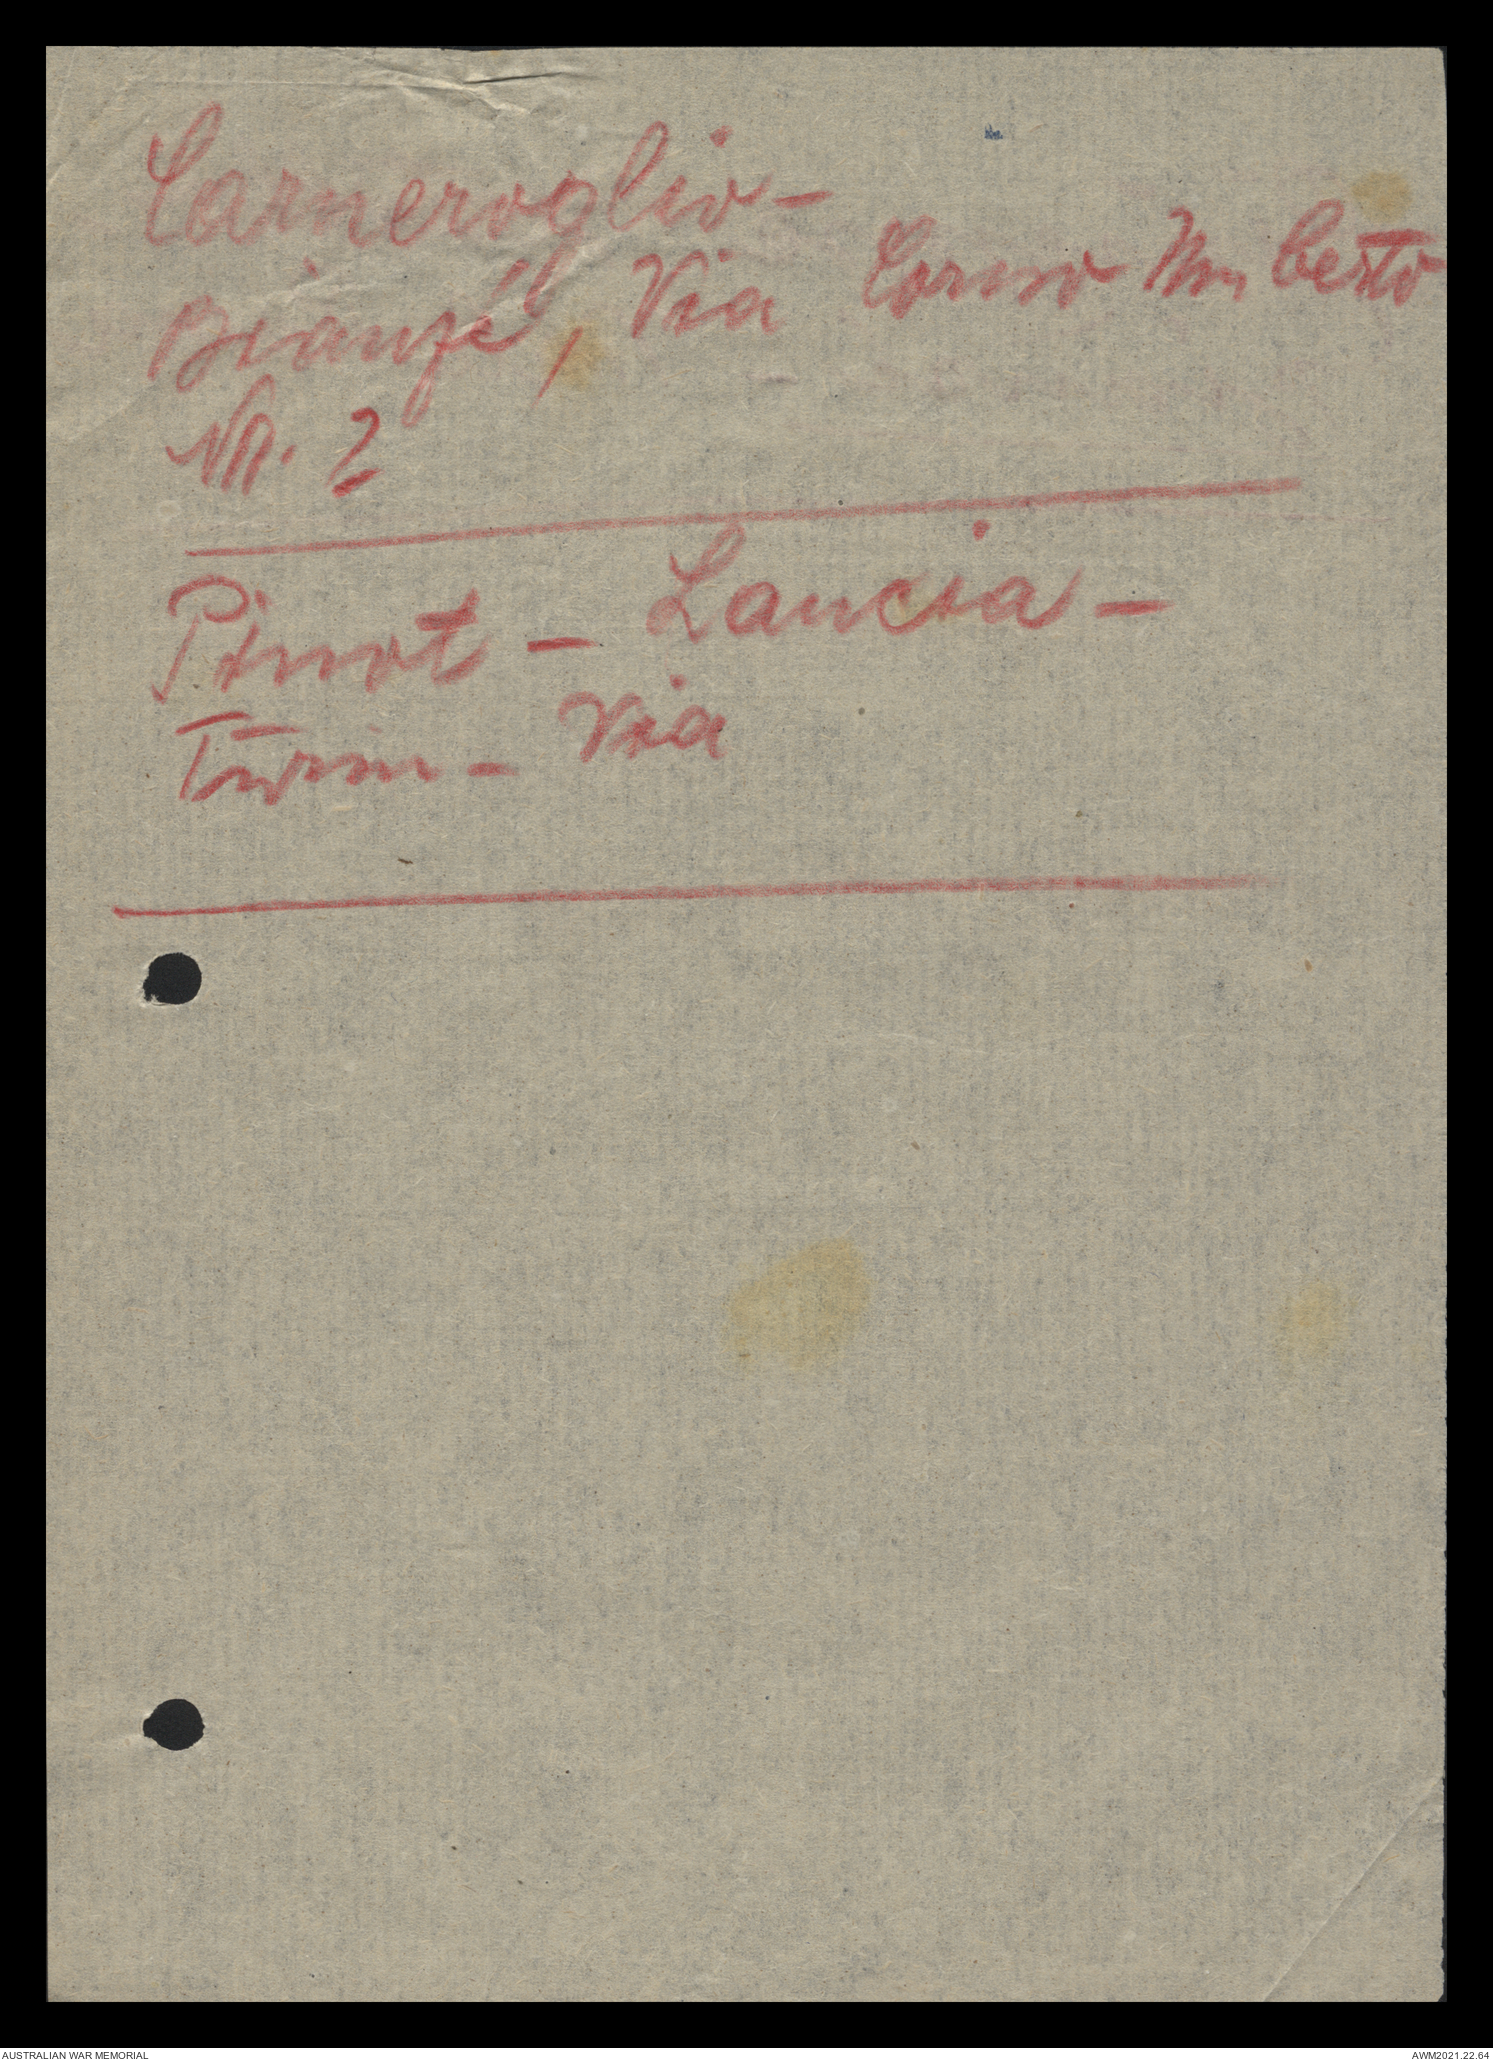 Carneroglio -
Bianzé, Via Corso Umberto
Nr. 2
Pinot - Lancia -
Turin - Via
AUSTRALIAN WAR MEMORIAL
AWM2021.22.64